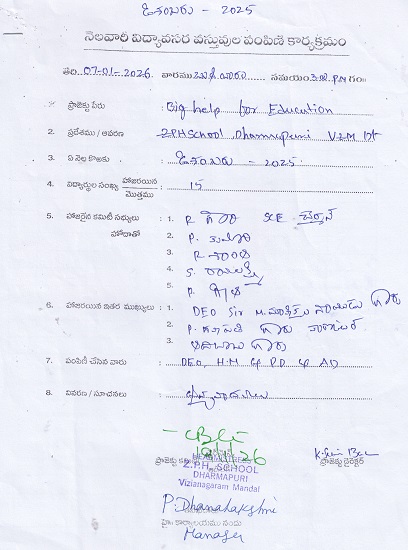 డిశంబరు - 2025
నెలవారీ విద్యావసర వస్తువుల పంపిణీ కార్యక్రమం
తేది 07-01-2026 వారము బుధవారం సమయం 3-00 P.M గం॥
ప్రాజెక్టు పేరు : Big help for Education
2. ప్రదేశము / ఆవరణ : Z.P.H School Dharmapuri VZM Dt
3. ఏ నెల కొఱకు : డిశంబరు - 2025
4. విద్యార్థుల సంఖ్య హాజరయిన / మొత్తము : 15
5. హాజరైన కమిటీ సభ్యులు : 1. R గౌరి
హోదాతో 2. P. కుమారి
3. R శాంతి
4. S.
5.
6. హాజరయిన ఇతర ముఖ్యులు : 1. DEO Sir గారు
2. P. గారు
3. గారు
7. పంపిణీ చేసిన వారు : DEO, H.M & P.D & AD
8. వివరణ / సూచనలు : ధన్యవాదములు
ప్రాజెక్టు డైరెక్టర్
Z.P.H. SCHOOL
DHARMAPURI
Vizianagaram Mandal
P. Dhanalakshmi
హై. కార్యాలయము నందు
Manager